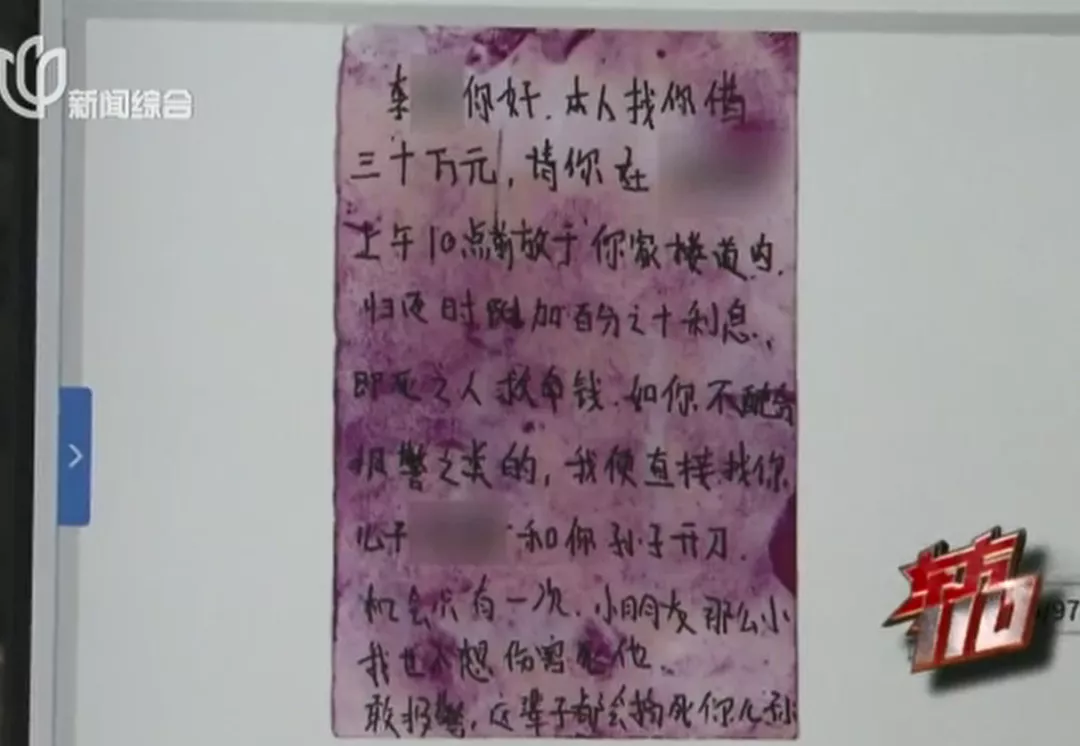 新闻综合
李 你好.本人找你借
三十万元,请你在
上午10点前放于你家楼道内.
归还时附加百分之十利息.
即死之人救命钱.如你不配合
报警之类的,我便直接找你
儿子 和你孙子开刀.
机会只有一次.小朋友那么小
我也不想伤害他.
敢报警,这辈子都会搞死你儿孙
东方110
97